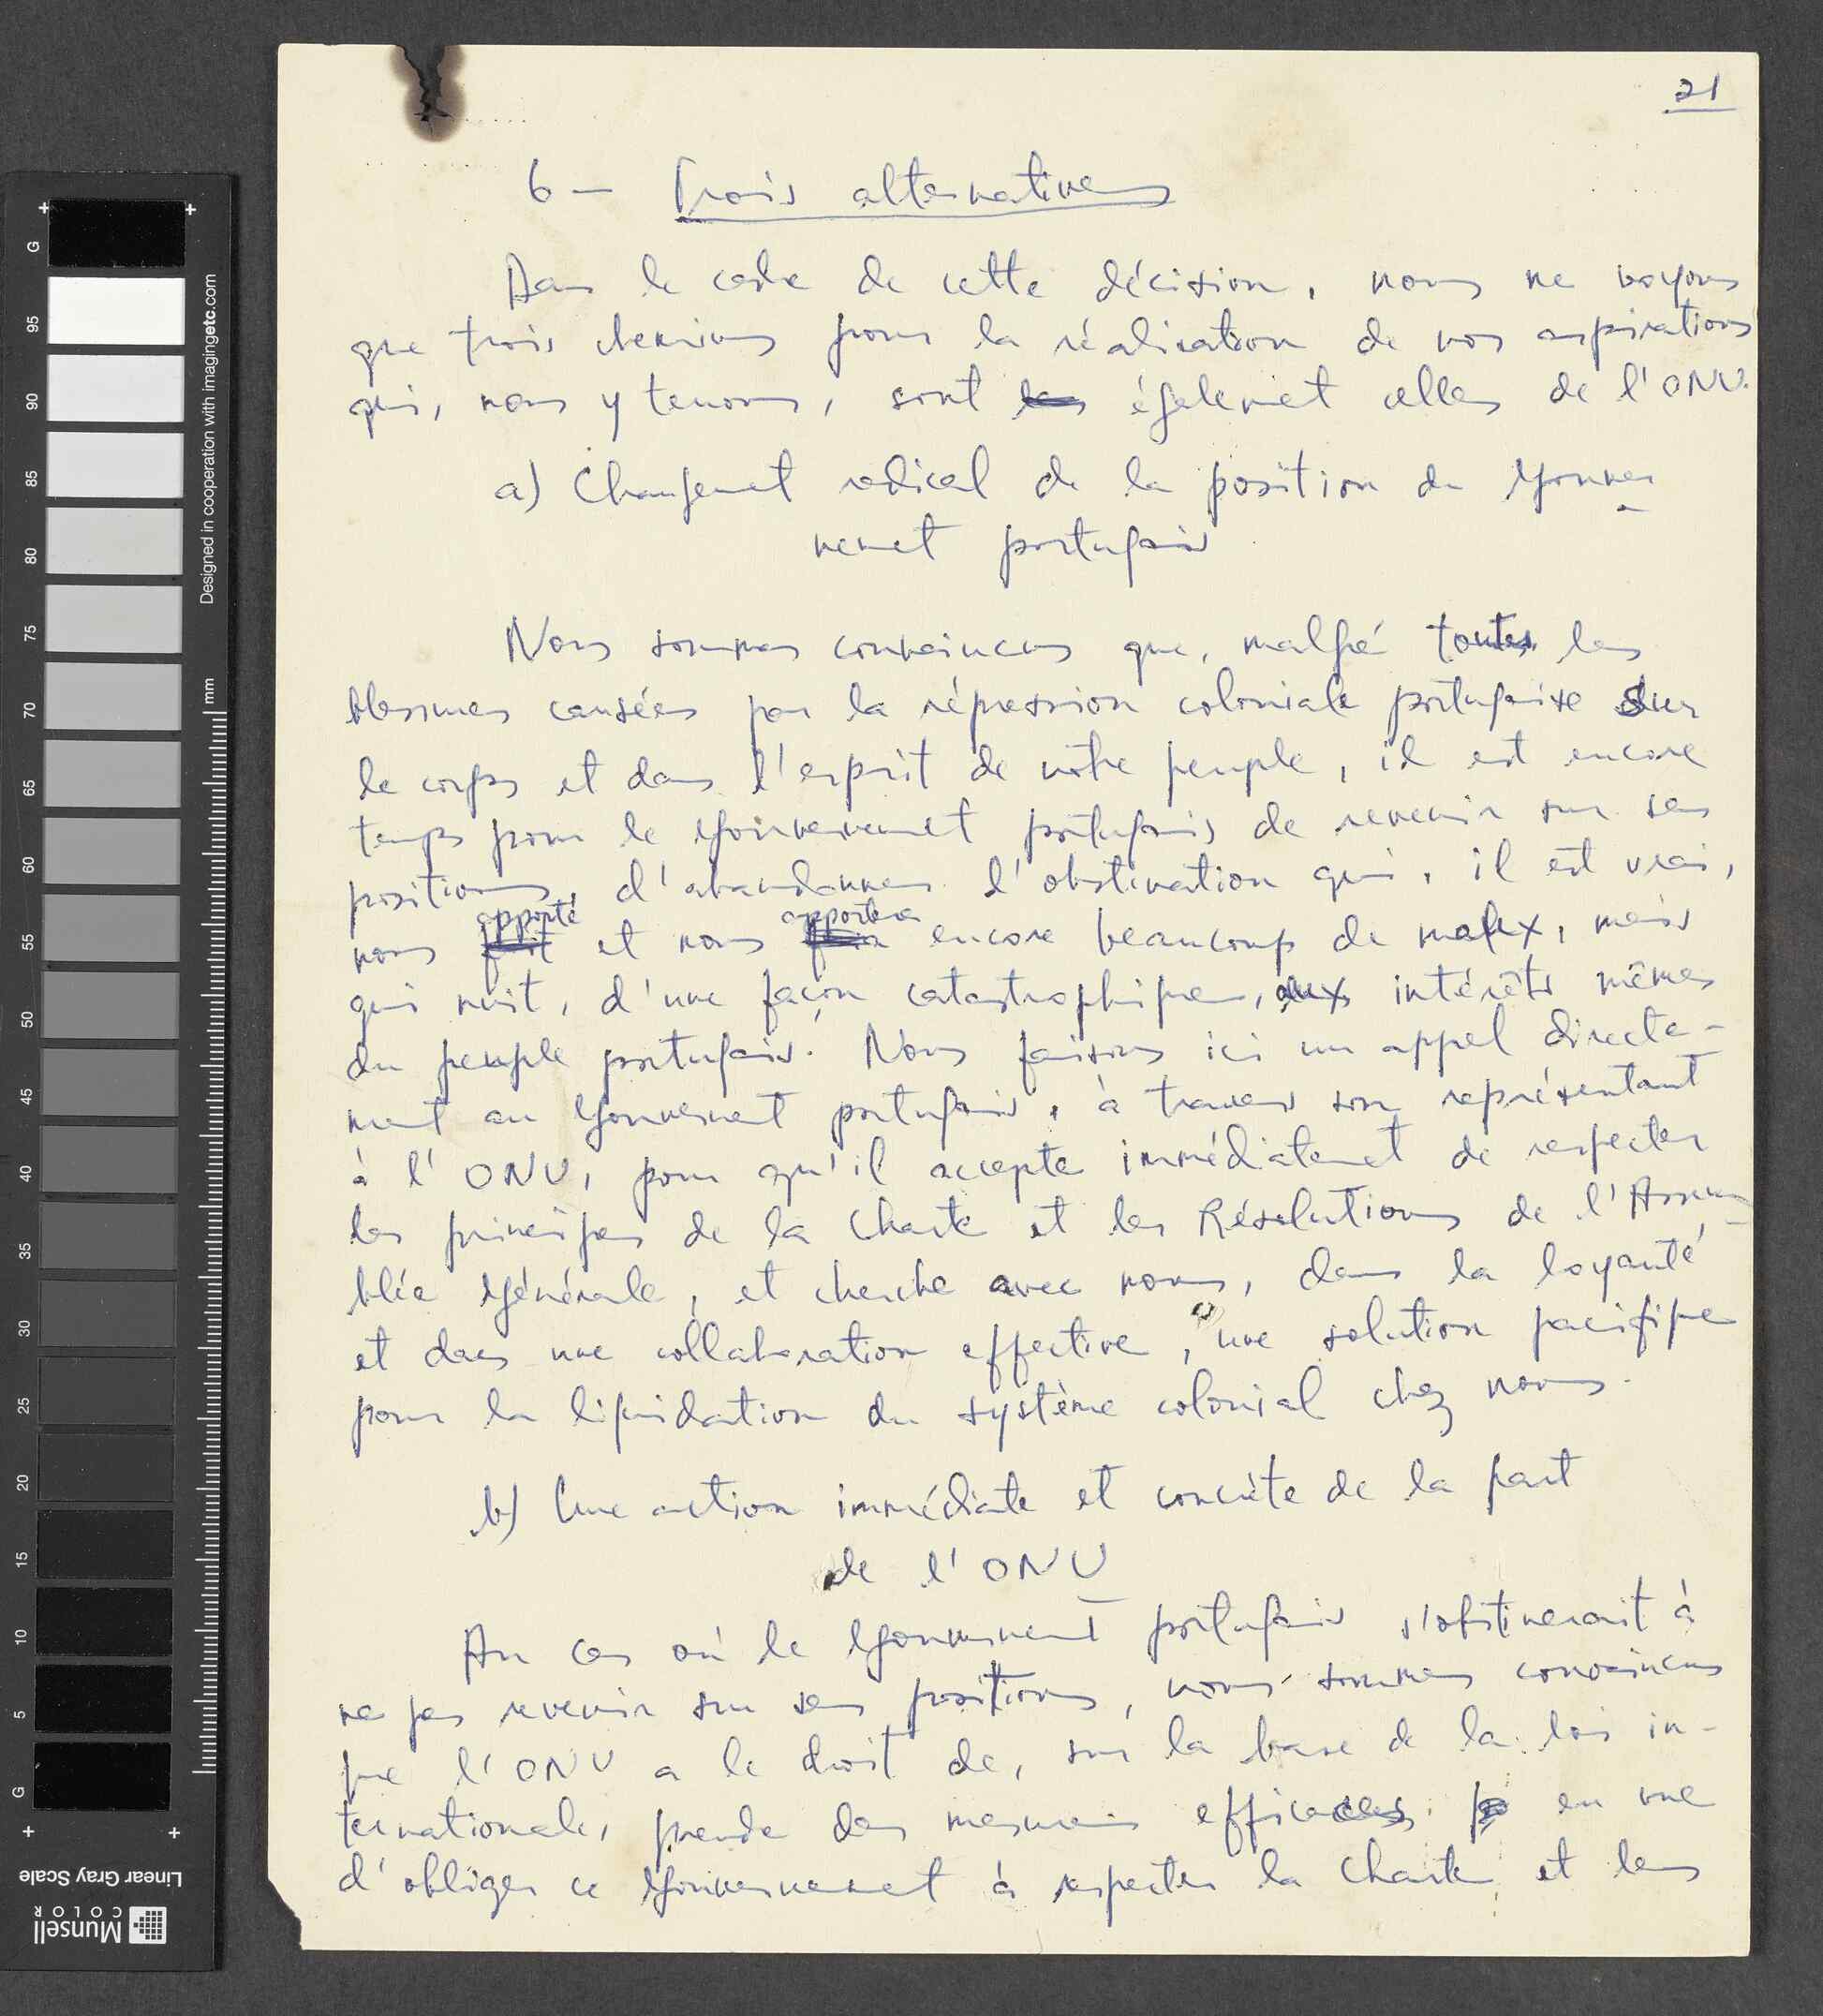 21
6 — Trois alternatives
Dans le cadre de cette décision, nous ne voyons
que trois chemins pour la réalisation de nos aspirations
qui, nous y tenons, sont les également celles de l'ONU.
a) Changement radical de la position du Gouver
nement portugais
Nous sommes convaincus que, malgré toutes les
blessures causées par la répression coloniale portugaise sur
le corps et dans l'esprit de notre peuple, il est encore
temps pour le Gouvernement portugais de revenir sur ses
positions, d'abandonner l'obstination qui, il est vrai,
apporté apportera
nous et nous encore beaucoup de maux, mais
qui nuit, d'une façon catastrophique, aux intérêts mêmes
du peuple portugais. Nous faisons ici un appel directe-
ment au Gouvernement portugais, à travers son représentant
à l'ONU, pour qu'il accepte immédiatement de respecter
les principes de la Charte et les Résolutions de l'Assem-
blée Générale, et cherche avec nous, dans la loyauté
et dans une collaboration effective, une solution pacifique
pour la liquidation du système colonial chez nous.
b) Une action immédiate et concrète de la part
de l'ONU
Au cas où le Gouvernement portugais s'obstinerait à
ne pas revenir sur ses positions, nous sommes convaincus
que l'ONU a le droit de, sur la base de la loi in-
ternationale, prendre des mesures efficaces en vue
d'obliger ce Gouvernement à respecter la Charte et les
Designed in cooperation with imagingetc.com
mm
G
95
90
85
80
75
70
65
60
55
50
45
40
35
30
25
20
15
10
5
G
Linear Gray Scale
Munsell
COLOR